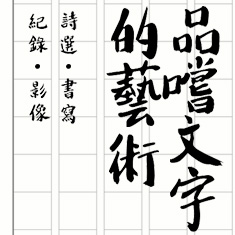 品嚐文字
的藝術
詩選・書寫
紀錄・影像